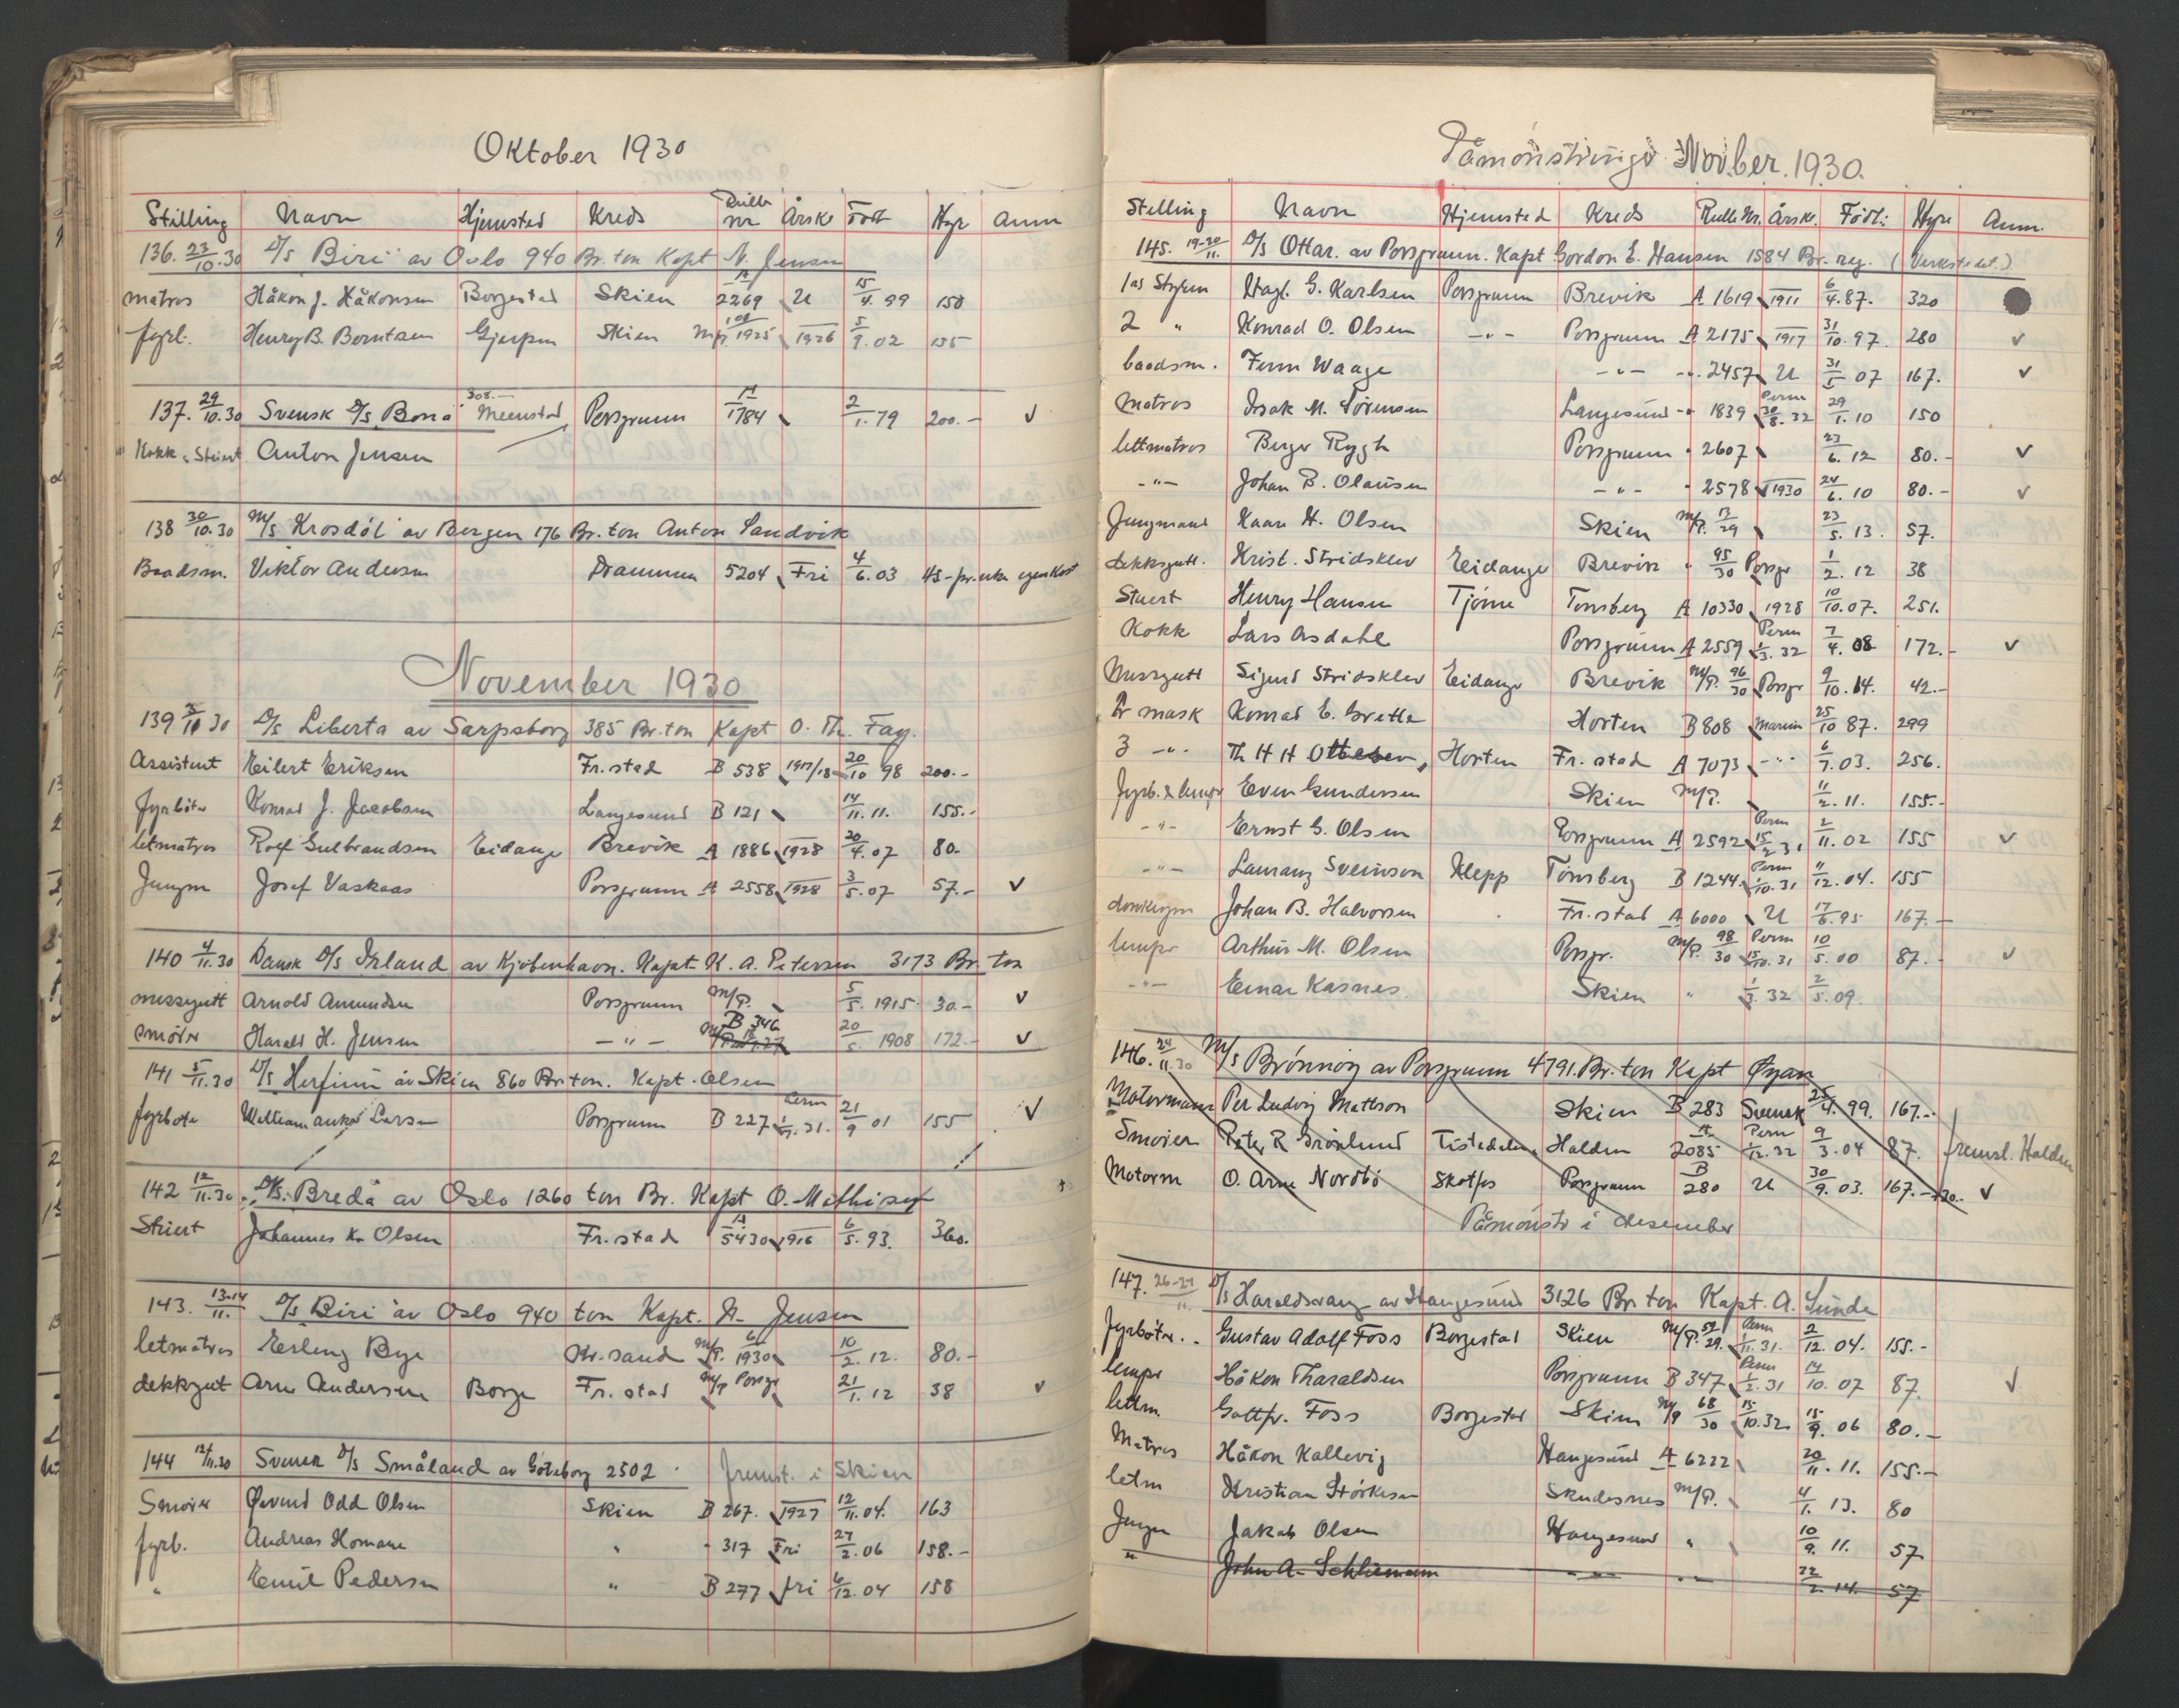 Oktober 1930
Stilling Navn Hjemsted Kreds Rulle nr Årskl Født Hyr Anm
136. 23/10.30 D/s "Biri" av Oslo 940 Br. ton Kapt N. Jensen
matros Håkon J. Håkonsen Borgestad Skien A 2269 U 15/4.99 150
fyrb. Henry B. Berntsen Gjerpen Skien M/P. 1925 1926 5/9.02 155
137. 29/10.30 Svensk D/s Bona 308.- Meenstad Porsgrunn A 1784 2/1.79 200.- v
Kokk & Stuert Anton Jensen
138 30/10.30 M/s "Krosdöl" av Bergen 176 Br. ton Anton Sandvik
Baadsm. Viktor Andersen Drammen 5204 Fri 4/6.03 45- pr. uke egen kost
November 1930
139 3/11 30 D/s Liberta av Sarpsborg 385 Br. ton Kapt O. Th. Fag.
Assistent Eilert Eriksen Fr.stad B 538 1917/18 20/10 98 200.-
fyrböter Konrad J. Jacobsen Langesund B 121 14/11.11. 155.-
letmatros Rolf Gulbrandsen Eidange Brevik A 1886 1928 20/4.07 80.
Jungm Josef Vaskaas Porsgrunn A 2558 1928 3/5.07 57.- v
140 4/11.30 Dansk D/s Irland av Kjøbenhavn. Kapt K. A. Petersen 3173 Br. ton
messegutt Arnold Amundsen Porsgrunn M/P. 5/5. 1915 30.- v
smörer Harald H. Jensen -"- B 346 20/5. 1908 172.- v
141 5/11.30 D/s Herfinn av Skien 860 Br. ton. Kapt. Olsen
fyrböte William Anker Larsen Porsgrunn B 227 Perm 1/7.31. 21/9 01 155 v
142 12/11.30. D/s. Breda av Oslo 1260 ton Br. Kapt O. Mathisen
Stuert Johannes K. Olsen Fr.stad A 5430 1916 6/5.93. 360.
143. 13-14/11. D/s Biri av Oslo 940 ton Kapt. N. Jensen
letmatros Erling Bye Kr.sand M/P. 6/1930 10/2.12. 80.-
dekkgut Arne Andersen Borge Fr.stad M/P Porsgr 21/1.12 38 v
144 12/11.30 Svensk D/s Småland av Göteborg 2502 fremst. i Skien
Smører Øivind Odd Olsen Skien B 267. 1927 12/11.04. 163
fyrb. Andreas Homane " " 317 Fri 27/2.06 158.-
" Emil Pedersen " B 277 fri 6/12.04 158
Påmönstringer Novber. 1930.
Stilling Navn Hjemsted Kreds Rulle Nr. Årskl. Född: Hyre Anm.
145. 19-20/11. D/s Ottar. av Porsgrunn. Kapt Gordon E. Hansen 1584 Br. reg. (Verkstedet.)
1as Styrm Hagb. G. Karlsen Porsgrunn Brevik A 1619 1911 6/4.87. 320
2 " Konrad O. Olsen -"- Porsgrunn A 2175 1917 31/10.97. 280 v
baadsm. Finn Waage -"- -". 2457 U 31/5 07 167. v
Matros Isak M. Sørensen Langesund -" 1839 Perm 30/8.32 29/1.10 150
lettmatros Berger Rygh Porsgrunn " 2607 23/6.12 80.- v
-"- Johan B. Olausen -"- " 2578 1930 24/6.10 80.- v
Jungmand Kaare H. Olsen Skien M/P. 13/29 23/5.13. 57.
dekksgutt. Krist. Stridsklev Eidange Brevik " 95/30 Porsgr 1/2.12 38
Stuert Henry Hansen Tjöme Tønsberg A 10330 1928 10/10.07. 251.
Kokk Lars Asdahl Porsgrunn A 2559 Perm 1/3.32 7/4.08 172.- v
Messgutt Sigurd Stridsklev Eidange Brevik M/P. 96/30 Porsgr 9/10.14. 42.-
2r mask Konrad E. Grette Horten B 808 Marin 25/10 87. 299
3 -"- Th H H Ottesen, Horten Fr.stad A 7073 -"- 6/7.03. 256.
fyrb. & lemper Even Gundersen Skien M/P. 11/2.11. 155.-
-"- Ernst G. Olsen Porsgrunn A 2592 Perm 15/2 31 2/11.02 155 v
-"- Laurang Sveinson Klepp Tønsberg B 1244. Perm 1/10.31 11/12.04. 155
donkeym Johan B. Halvorsen Fr.stad A 6000 U 17/6.95 167.-
lemper Arthur M. Olsen Porsgr. M/P. 98/30 Perm 15/10.31 10/5.00 87. v
-"- Einar Kasnes. Skien " 1/3.32 2/5.09.
146. 24/11.30 M/s Brønnøy av Porsgrunn 4791. Br. ton Kapt Øyan
Motormann Per Ludvig Mattson Skien B 283 Svensk 25/4.99. 167.-
Smøier Peter R Grönlund Tistedalen Halden A 2085 Perm 1/12.32 9/3.04 87. fremst. Halden
Motorm O. Arne Nordbö Skotfos Porsgrunn B 280 U 30/9.03. 167.- v
Påmönstr i desember
147. 26-27/11. D/s Haraldsvang av Haugesund 3126 Br. ton Kapt. A. Sunde
Fyrböter. Gustav Adolf Foss Borgestad Skien M/P. 52/29. Perm 1/11.31. 2/12.04. 155.-
lemper Håkon Tharaldsen Porsgrunn B 347 Perm 1/2.31 14/10.07 87. v
letm. Gottfr. Foss Borgestad Skien M/P 68/30 15/10.32 15/9.06 80.-
Matros Håkon Kallevig Haugesund A 6222 20/11.11. 155.-
letm Kristian Störkesen Skudesnes M/P. 4/1.13. 80
Jungm Jakob Olsen Haugesund " 10/9.11. 57
" John A. Schliemann -"- -"- 22/2.14. 57